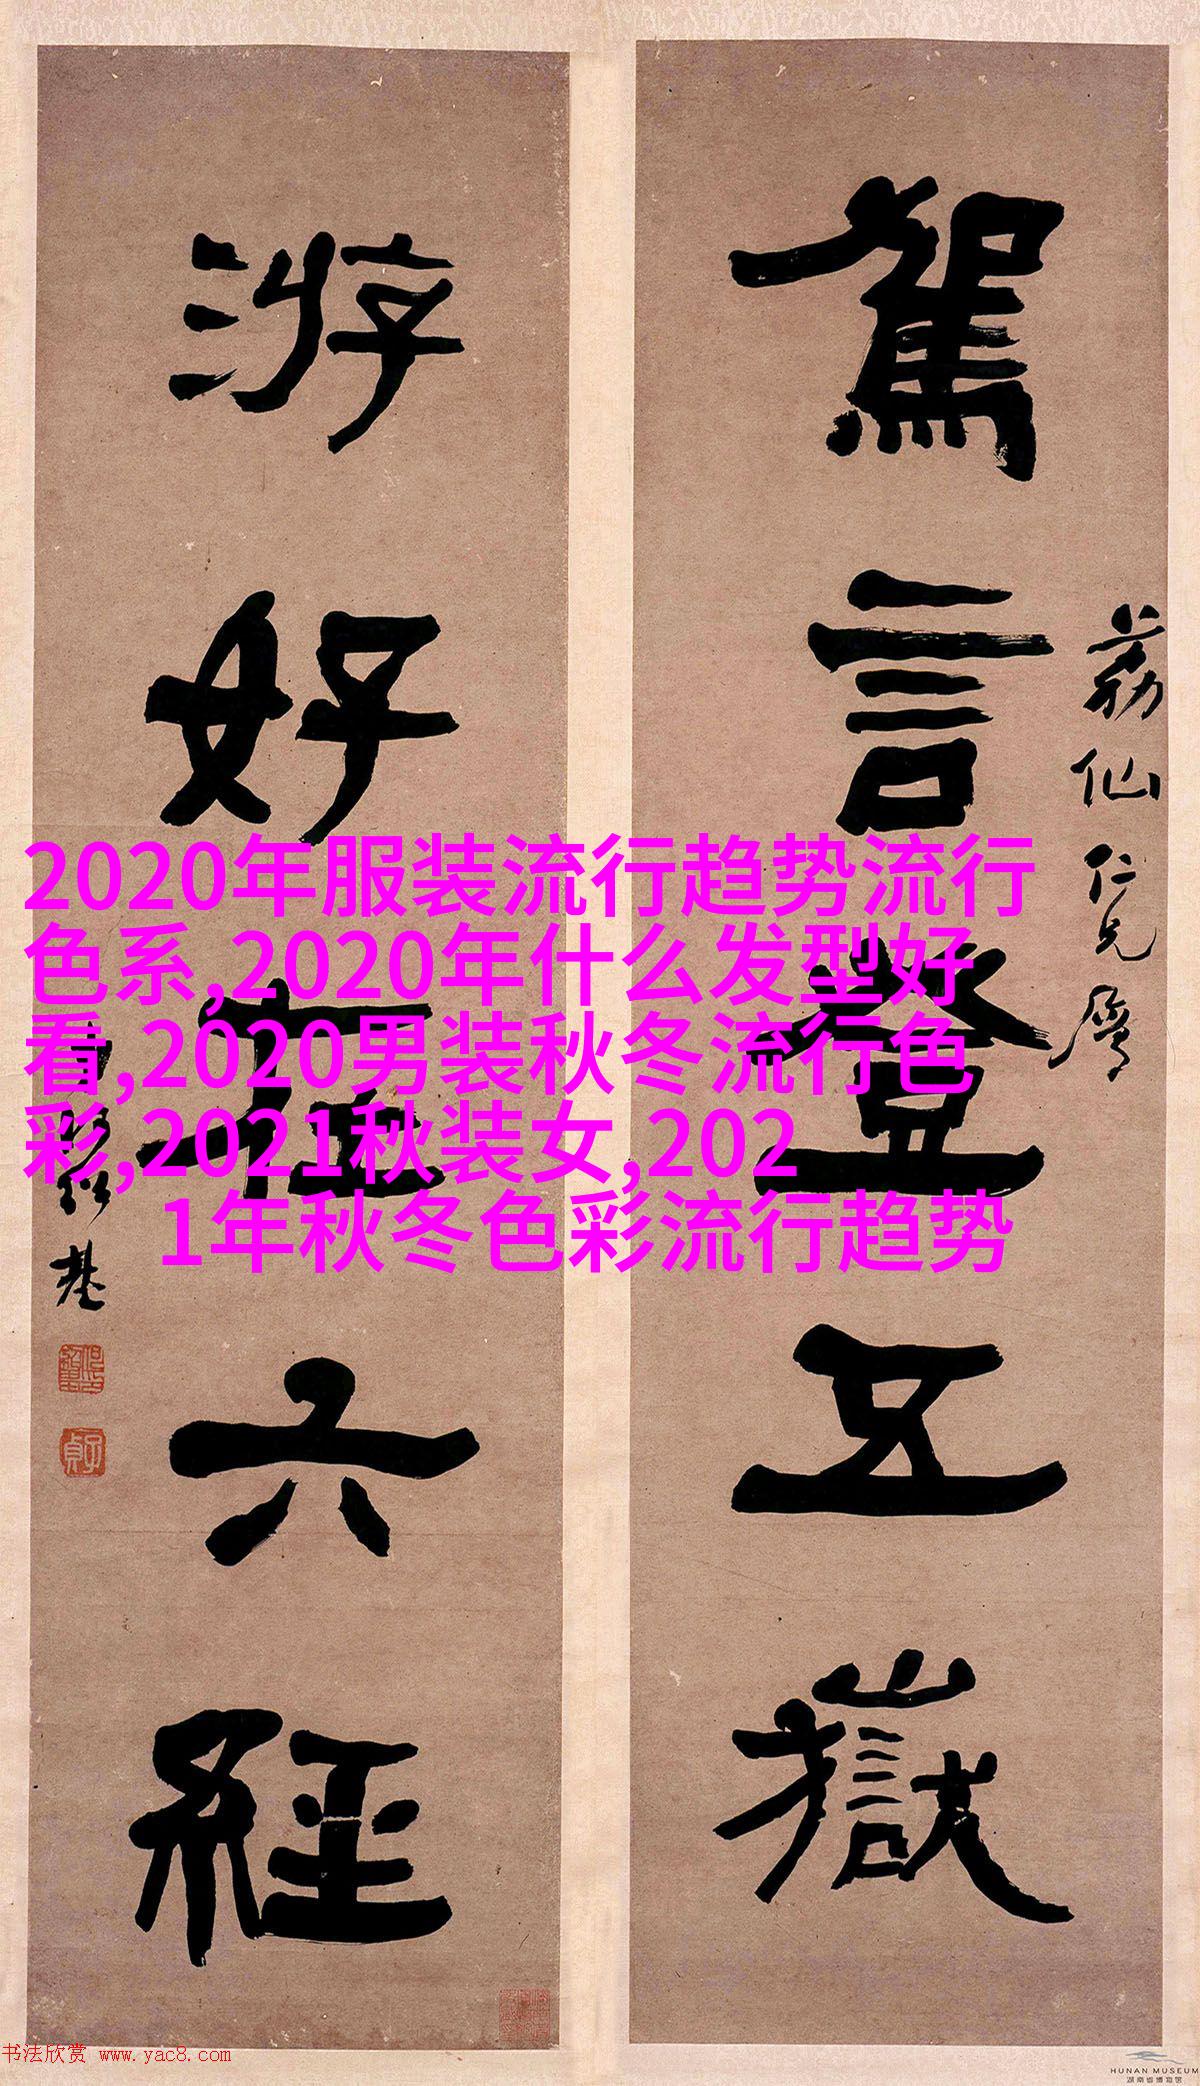 駕言登五嶽
荔仙仁兄屬
游好在六經
何紹基
子貞
2020年服装流行趋势流行
色系,2020年什么发型好
看,2020男装秋冬流行色
彩,2021秋装女,202
1年秋冬色彩流行趋势
书法欣赏 www.yac8.com
HUNAN MUSEUM
湖南省博物馆